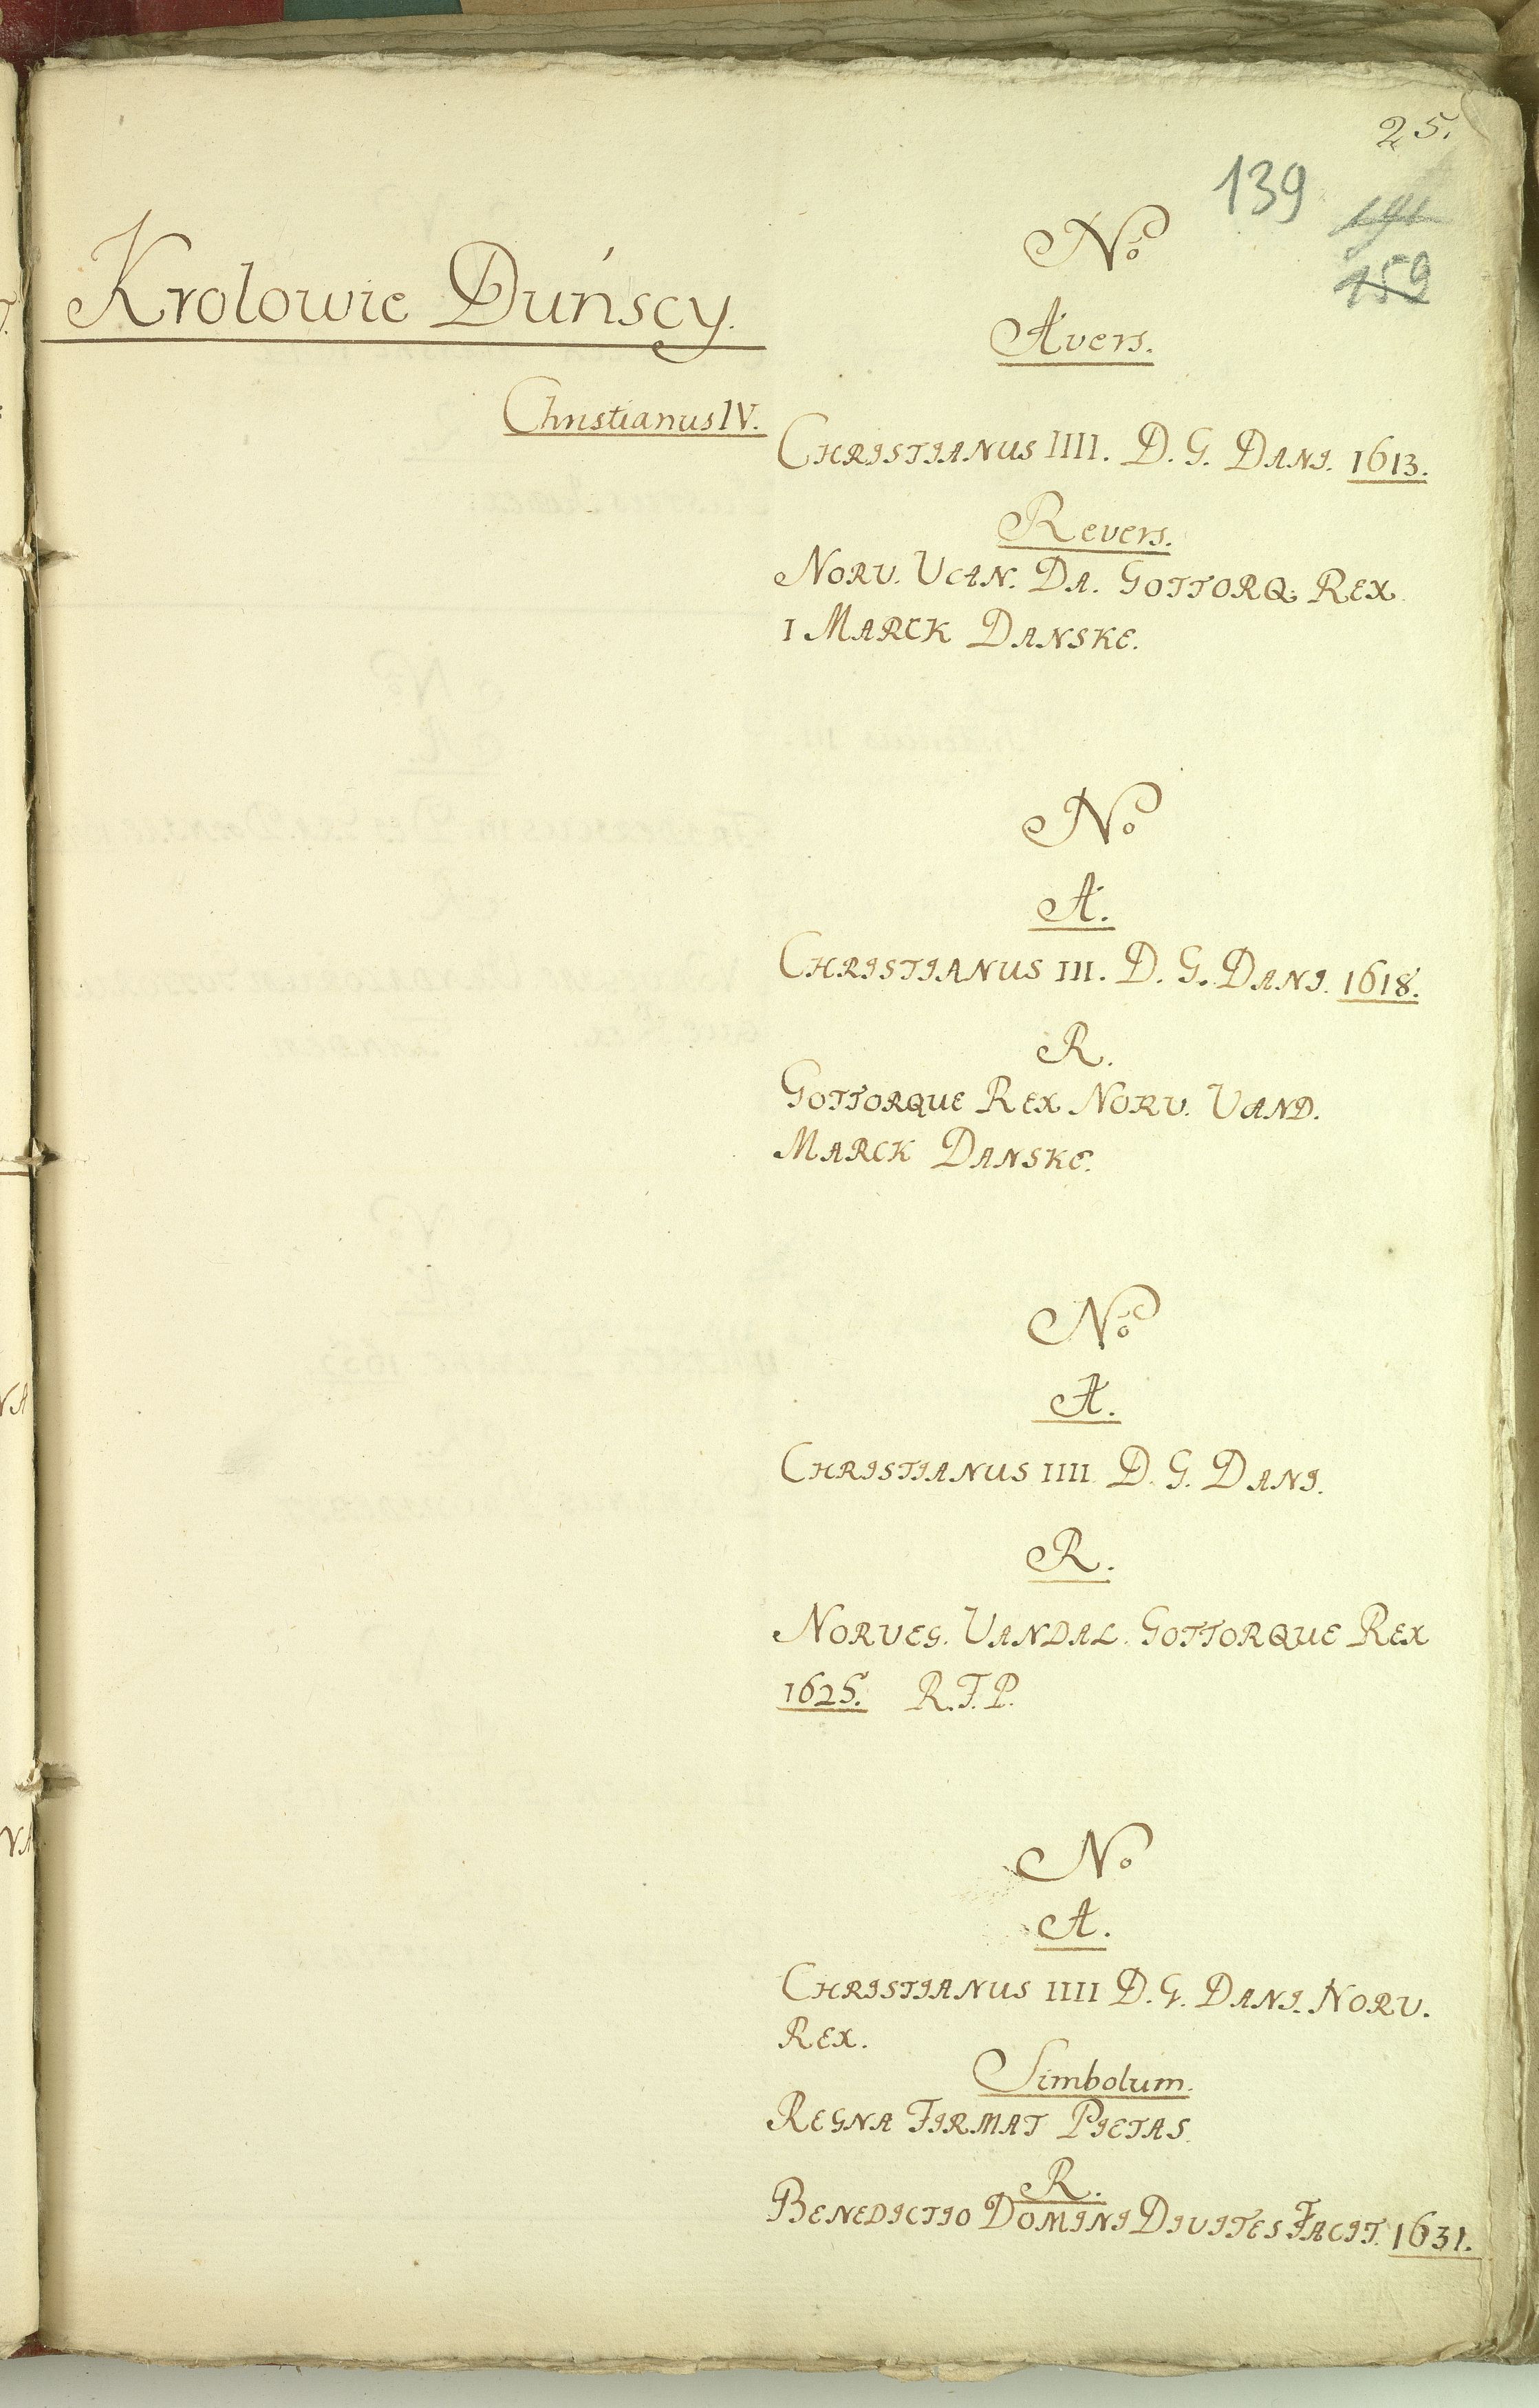 25.
139
191
159
Krolowie Duńscy.
Christianus IV.
No
Avers.
CHRISTIANUS IIII. D. G. DANI. 1613.
Revers.
NORV. VAN. DA. GOTTORQ: REX
1 MARCK DANSKE.
No
A.
CHRISTIANUS III. D. G. DANI. 1618.
R.
GOTTORQUE REX NORV. VAND.
MARCK DANSKE.
No
A.
CHRISTIANUS IIII D. G. DANI.
R.
NORVEG. VANDAL. GOTTORQUE REX
1625. R.F.P.
No
A.
CHRISTIANUS IIII D. G. DANI. NORV.
REX.
Simbolum.
REGNA FIRMAT PIETAS.
R.
BENEDICTIO DOMINI DIVITES FACIT. 1631.